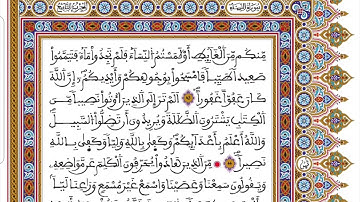 سورة النساء
الحزب التاسع
مِّنكُم مِّنَ ٱلْغَآئِطِ أَوْ لَٰمَسْتُمُ ٱلنِّسَآءَ فَلَمْ تَجِدُواْ مَآءً فَتَيَمَّمُواْ
صَعِيداً طَيِّباً فَٱمْسَحُواْ بِوُجُوهِكُمْ وَأَيْدِيكُمُۥٓ إِنَّ ٱللَّهَ
كَانَ عَفُوّاً غَفُوراً أَلَمْ تَرَ إِلَى ٱلذِينَ أُوتُواْ نَصِيباً مِّنَ
ٱلْكِتَٰبِ يَشْتَرُونَ ٱلضَّلَٰلَةَ وَيُرِيدُونَ أَن تَضِلُّواْ ٱلسَّبِيلَ
وَٱللَّهُ أَعْلَمُ بِأَعْدَآئِكُمْ وَكَفَىٰ بِٱللَّهِ وَلِيّاً وَكَفَىٰ بِٱللَّهِ
نَصِيراً مِّنَ ٱلذِينَ هَادُواْ يُحَرِّفُونَ ٱلْكَلِمَ عَن مَّوَاضِعِهِۦ
وَيَقُولُونَ سَمِعْنَا وَعَصَيْنَا وَٱسْمَعْ غَيْرَ مُسْمَعٍ وَرَٰعِنَا لَيّاً